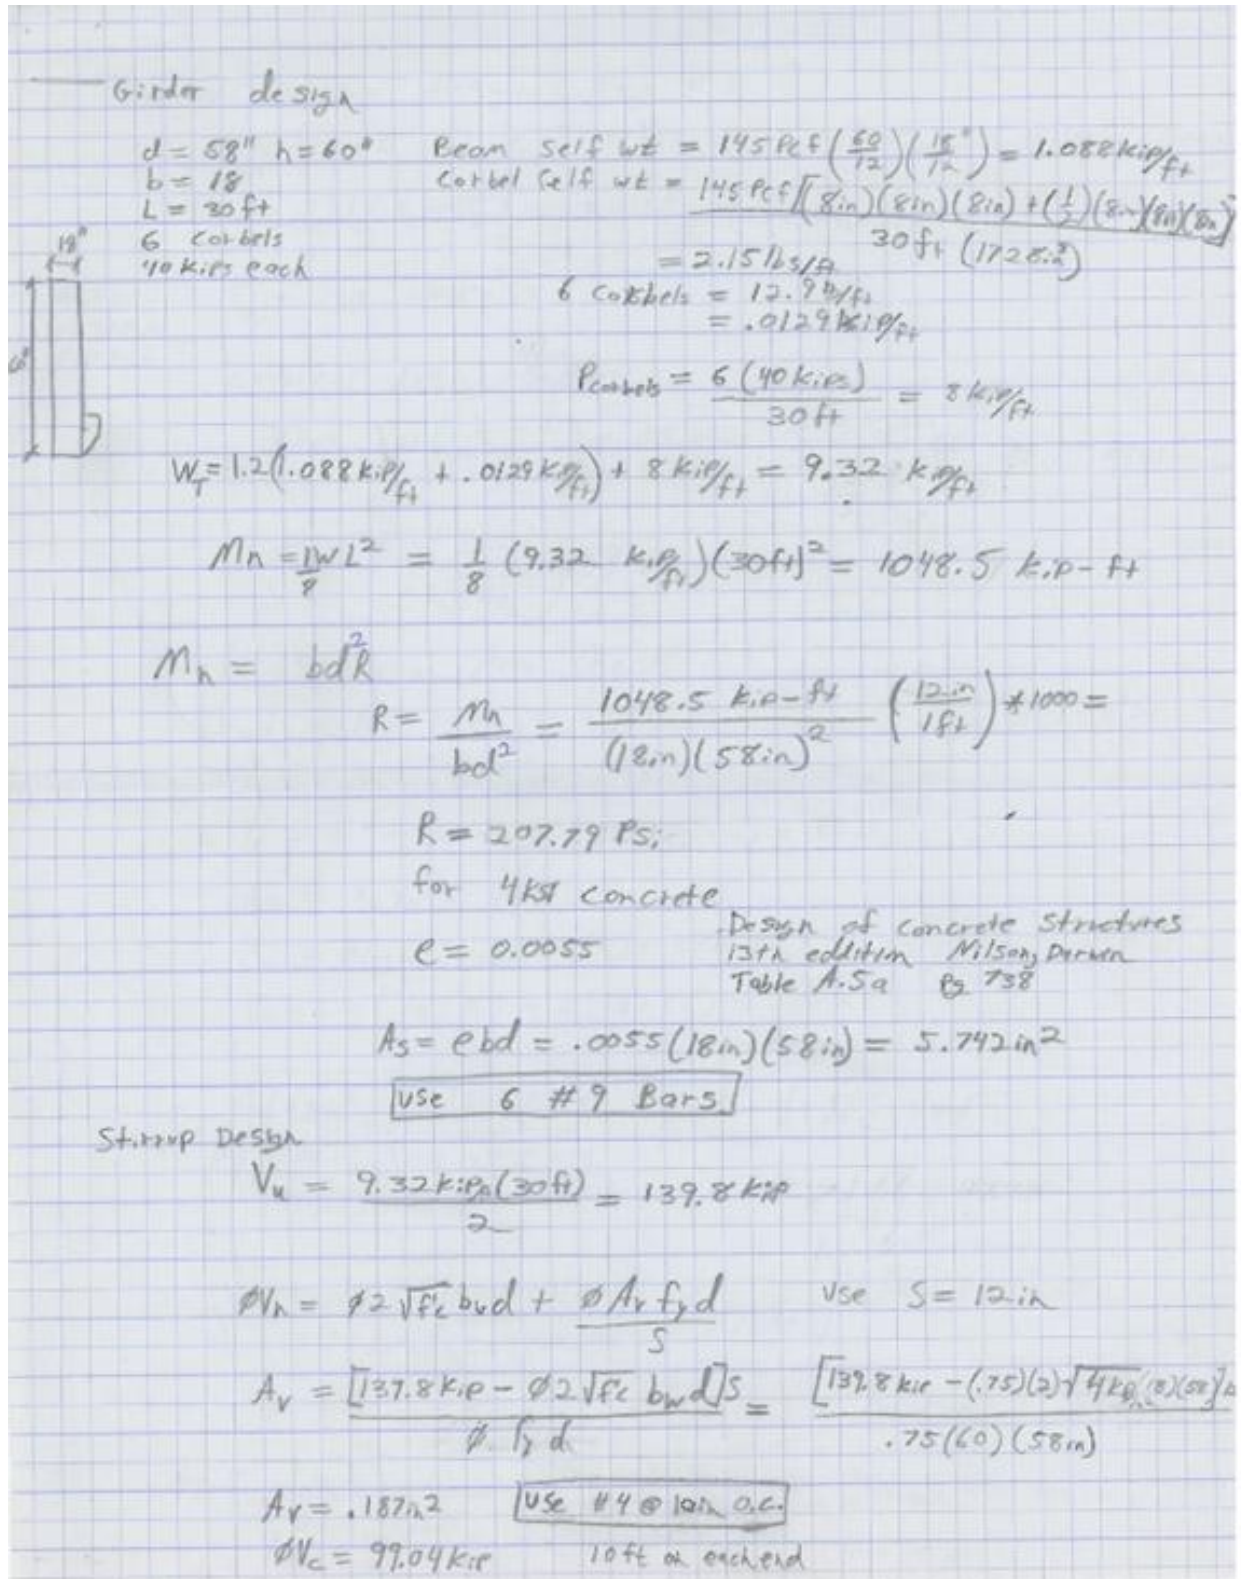 Girder design
d = 58" h = 60"
b = 18
L = 30 ft
6 corbels
40 kips each
Beam self wt = 145 Pcf (60/12)(18"/12) = 1.088 kip/ft
Corbel self wt = 145 Pcf [(8in)(8in)(8in) + (1/2)(8in)(8in)(8in)] / 30 ft (1728in³)
= 2.15 lbs/ft
6 corbels = 12.9 #/ft
= .0129 kip/ft
18"
60"
Pcorbels = 6 (40 kips) / 30 ft = 8 kip/ft
W_T = 1.2(1.088 kip/ft + .0129 kip/ft) + 8 kip/ft = 9.32 kip/ft
Mn = 1WL²/8 = 1/8 (9.32 kip/ft)(30ft)² = 1048.5 kip-ft
Mn = bd²R
R = Mn/bd² = 1048.5 kip-ft / (18in)(58in)² (12in/1ft) *1000 =
R = 207.79 Psi
for 4ksi concrete
ρ = 0.0055
Design of concrete structures
13th eddition Nilson, Darwin
Table A.5a Pg 738
As = ρbd = .0055(18in)(58in) = 5.742 in²
use 6 #9 Bars
Stirrup Design
Vu = 9.32 kip/ft (30ft) / 2 = 139.8 kip
ØVn = Ø2√f'c bwd + Ø Av fy d / S use S = 12 in
Av = [139.8 kip - Ø2√f'c bw d]S / Ø fy d = [139.8 kip - (.75)(2)√4ksi (18)(58)]12 / .75(60)(58in)
Av = .187in² use #4 @ 10in o.c.
ØVc = 99.04 kip 10 ft on each end